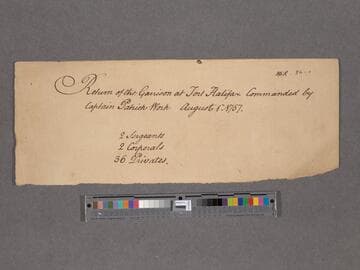 Return of the Garrison at Fort Halifax Commanded by
Captain Patrick Work August 1st 1757.
2 Sergeants
2 Corporals
36 Privates.